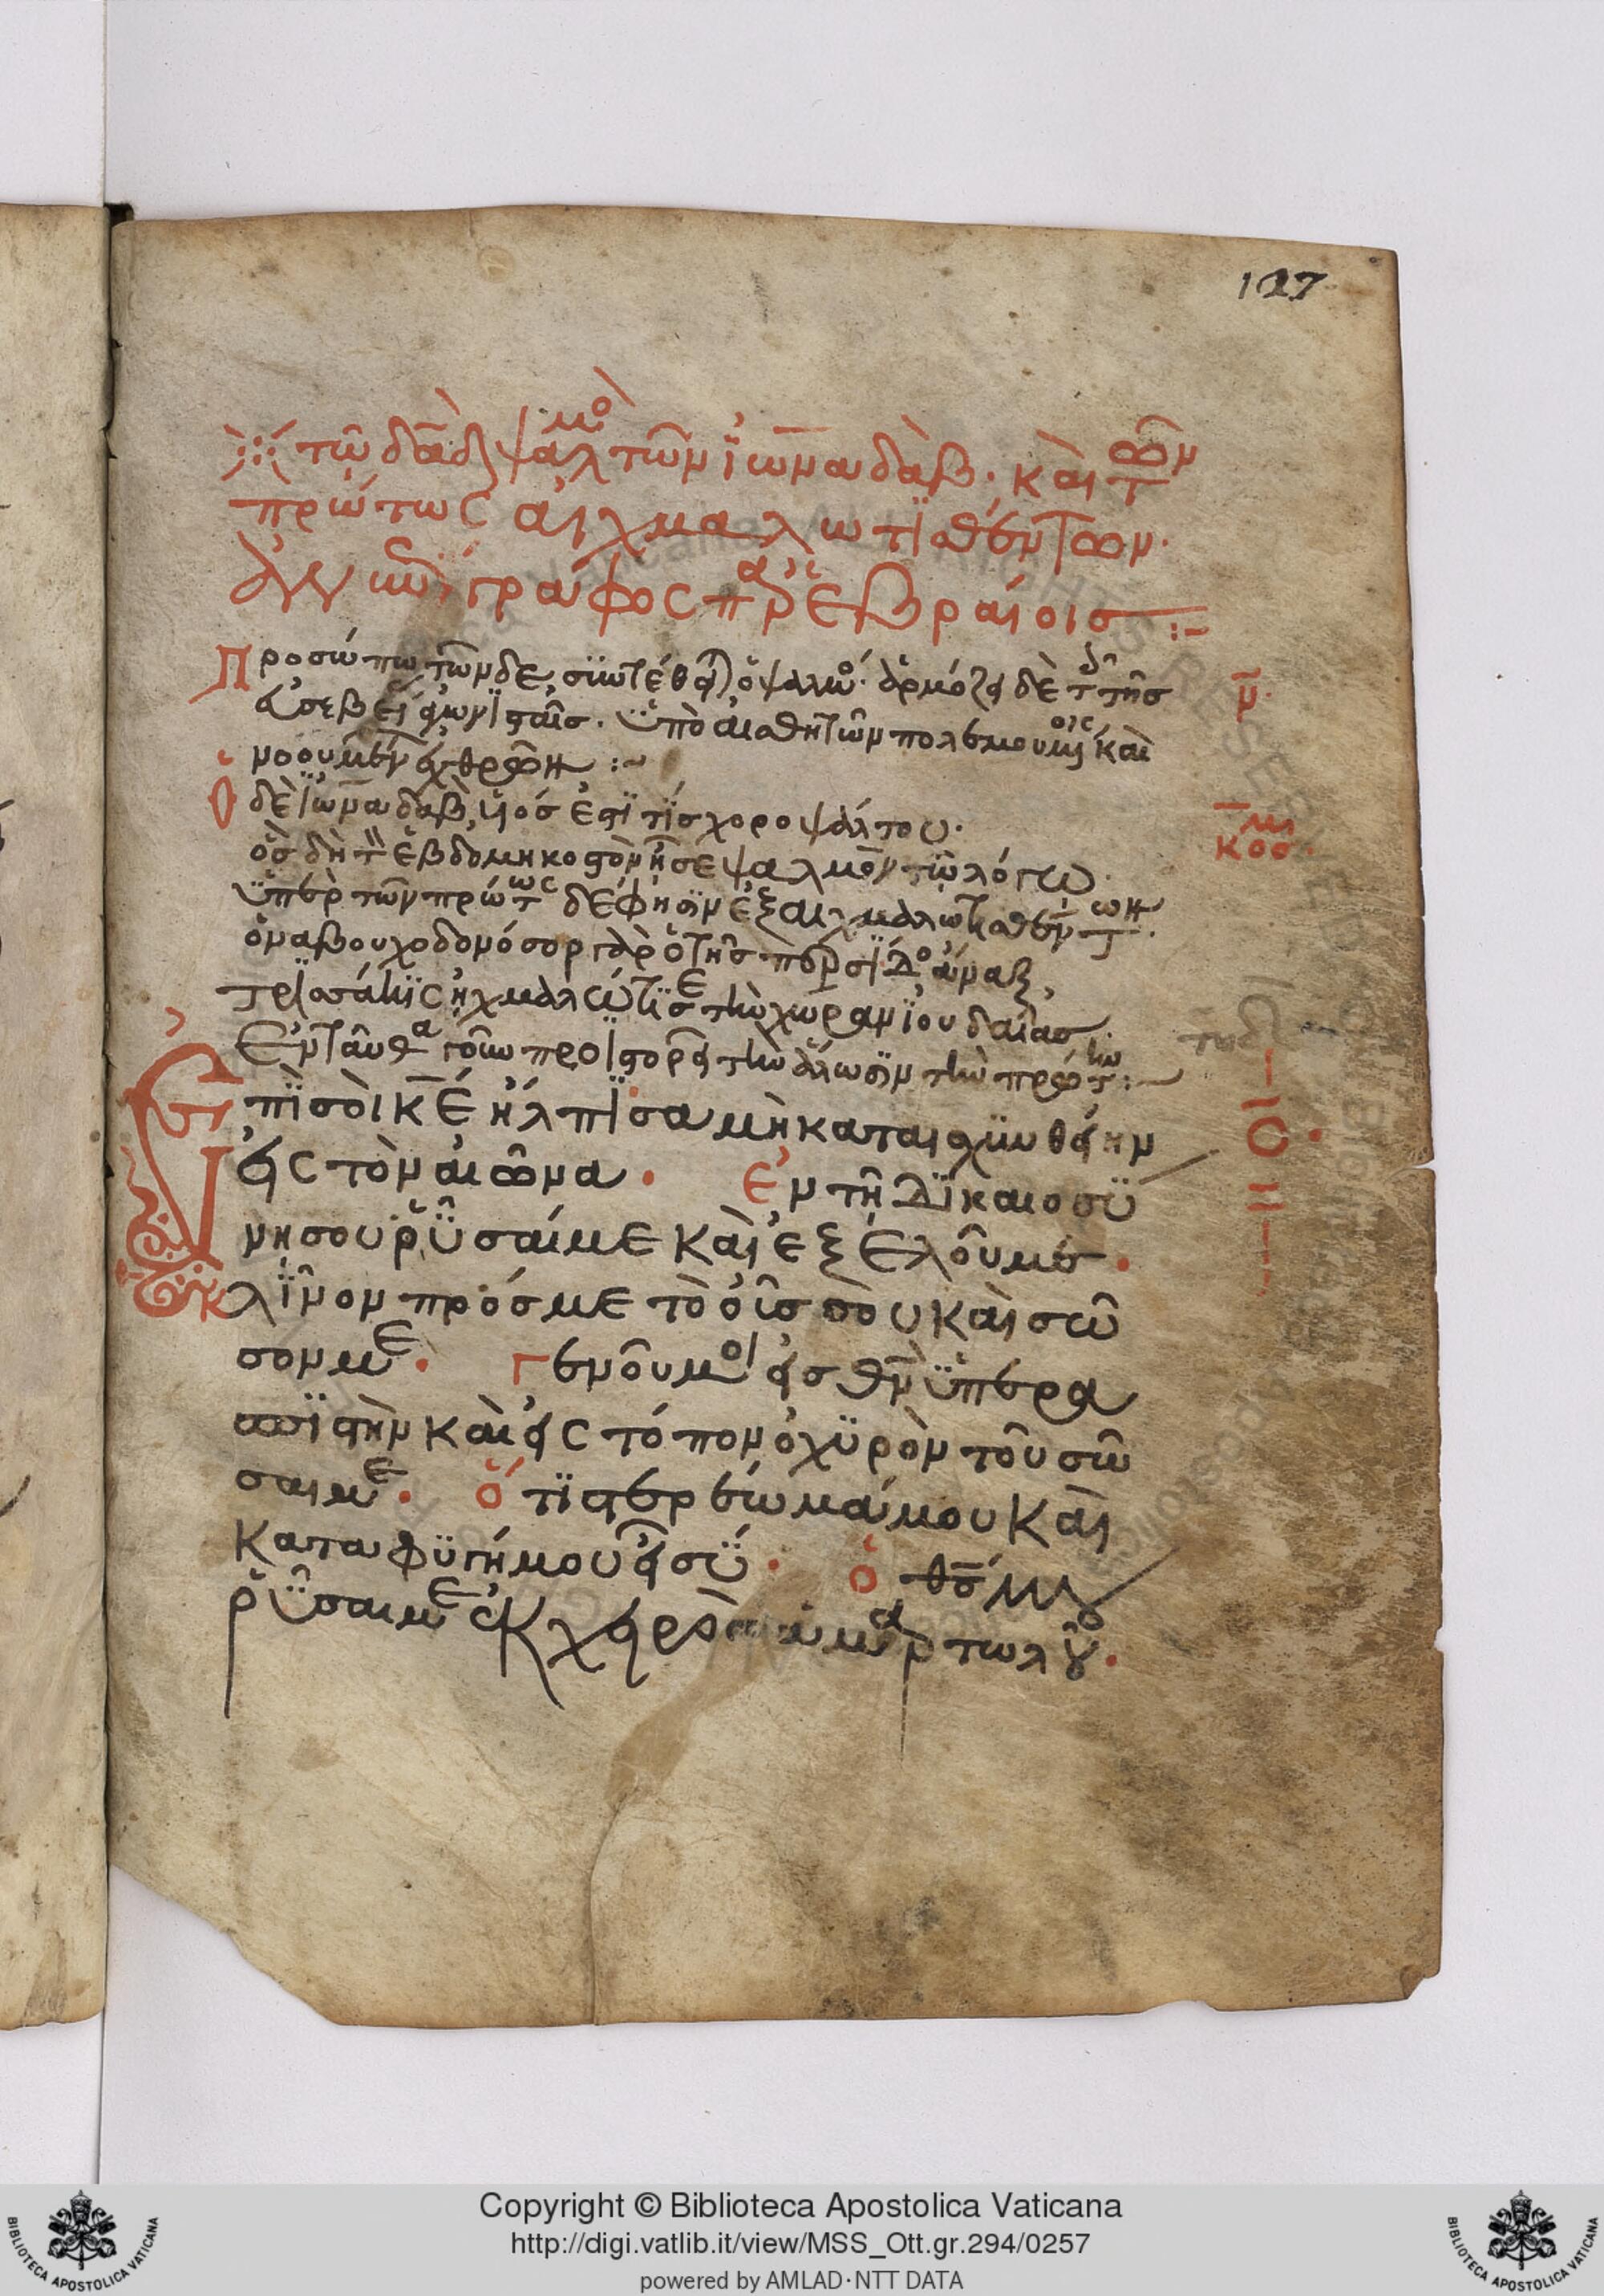 127
τῶ δαδ ψαλμὸ τῶν ἰωναδάβ. καὶ τῶν
πρώτως αἰχμαλωτισθέντων.
ἀνεπίγραφος παρ ἑβραίοις :-
Προσώπω τῶνδε συνετέθη ὁ ψαλμό. ἁρμόζει δὲ τοῖς τῆς
ἀσεβεί ἀγωνισταῖς. ὑπὸ αἰσθητῶν πολεμουμένοις καὶ
νοουμένων ἐχθρῶν :~
ν
Ὁ δὲ ἰωναδὰβ, υἱός ἐστί τίς χοροψάλτου.
κος
ὃς δὴ τὸν ἑβδομηκοστὸν ᾖσε ψαλμὸν τῶ λόγω.
ὑπὲρ τῶν πρώτως δέ φησιν ἐξαιχμαλωτισθέντων.
ὁ ναβουχοδονόσορ γὰρ ὁ τῆς περσίδο ἄναξ,
τρισσάκις ἠχμαλώτισε τὴν χώραν ἰουδαίας.
Ἐνταῦθα γοῦν προϊστορεῖ τὴν ἅλωσιν τὴν πρώτην :-
Ἐπὶ σοὶ κε ἤλπισα μὴ καταισχυνθείην
εἰς τὸν αἰῶνα. Ἐν τῆ δικαιοσύ
ο
νη σου ῥῦσαί με καὶ ἐξελοῦ με.
Κλῖνον πρός με τὸ οὖς σου καὶ σῶ
σόν με. Γενοῦ μοι εἰς θν ὑπερα
σπιστὴν καὶ εἰς τόπον ὀχυρὸν τοῦ σῶ
σαι με. Ὅτι στερέωμά μου καὶ
καταφυγή μου εἶ σύ. Ὁ θς μου
ῥῦσαι με ἐκ χειρὸς ἁμαρτωλοῦ.
Copyright © Biblioteca Apostolica Vaticana
http://digi.vatlib.it/view/MSS_Ott.gr.294/0257
powered by AMLAD·NTT DATA
BIBLIOTECA APOSTOLICA VATICANA
BIBLIOTECA APOSTOLICA VATICANA